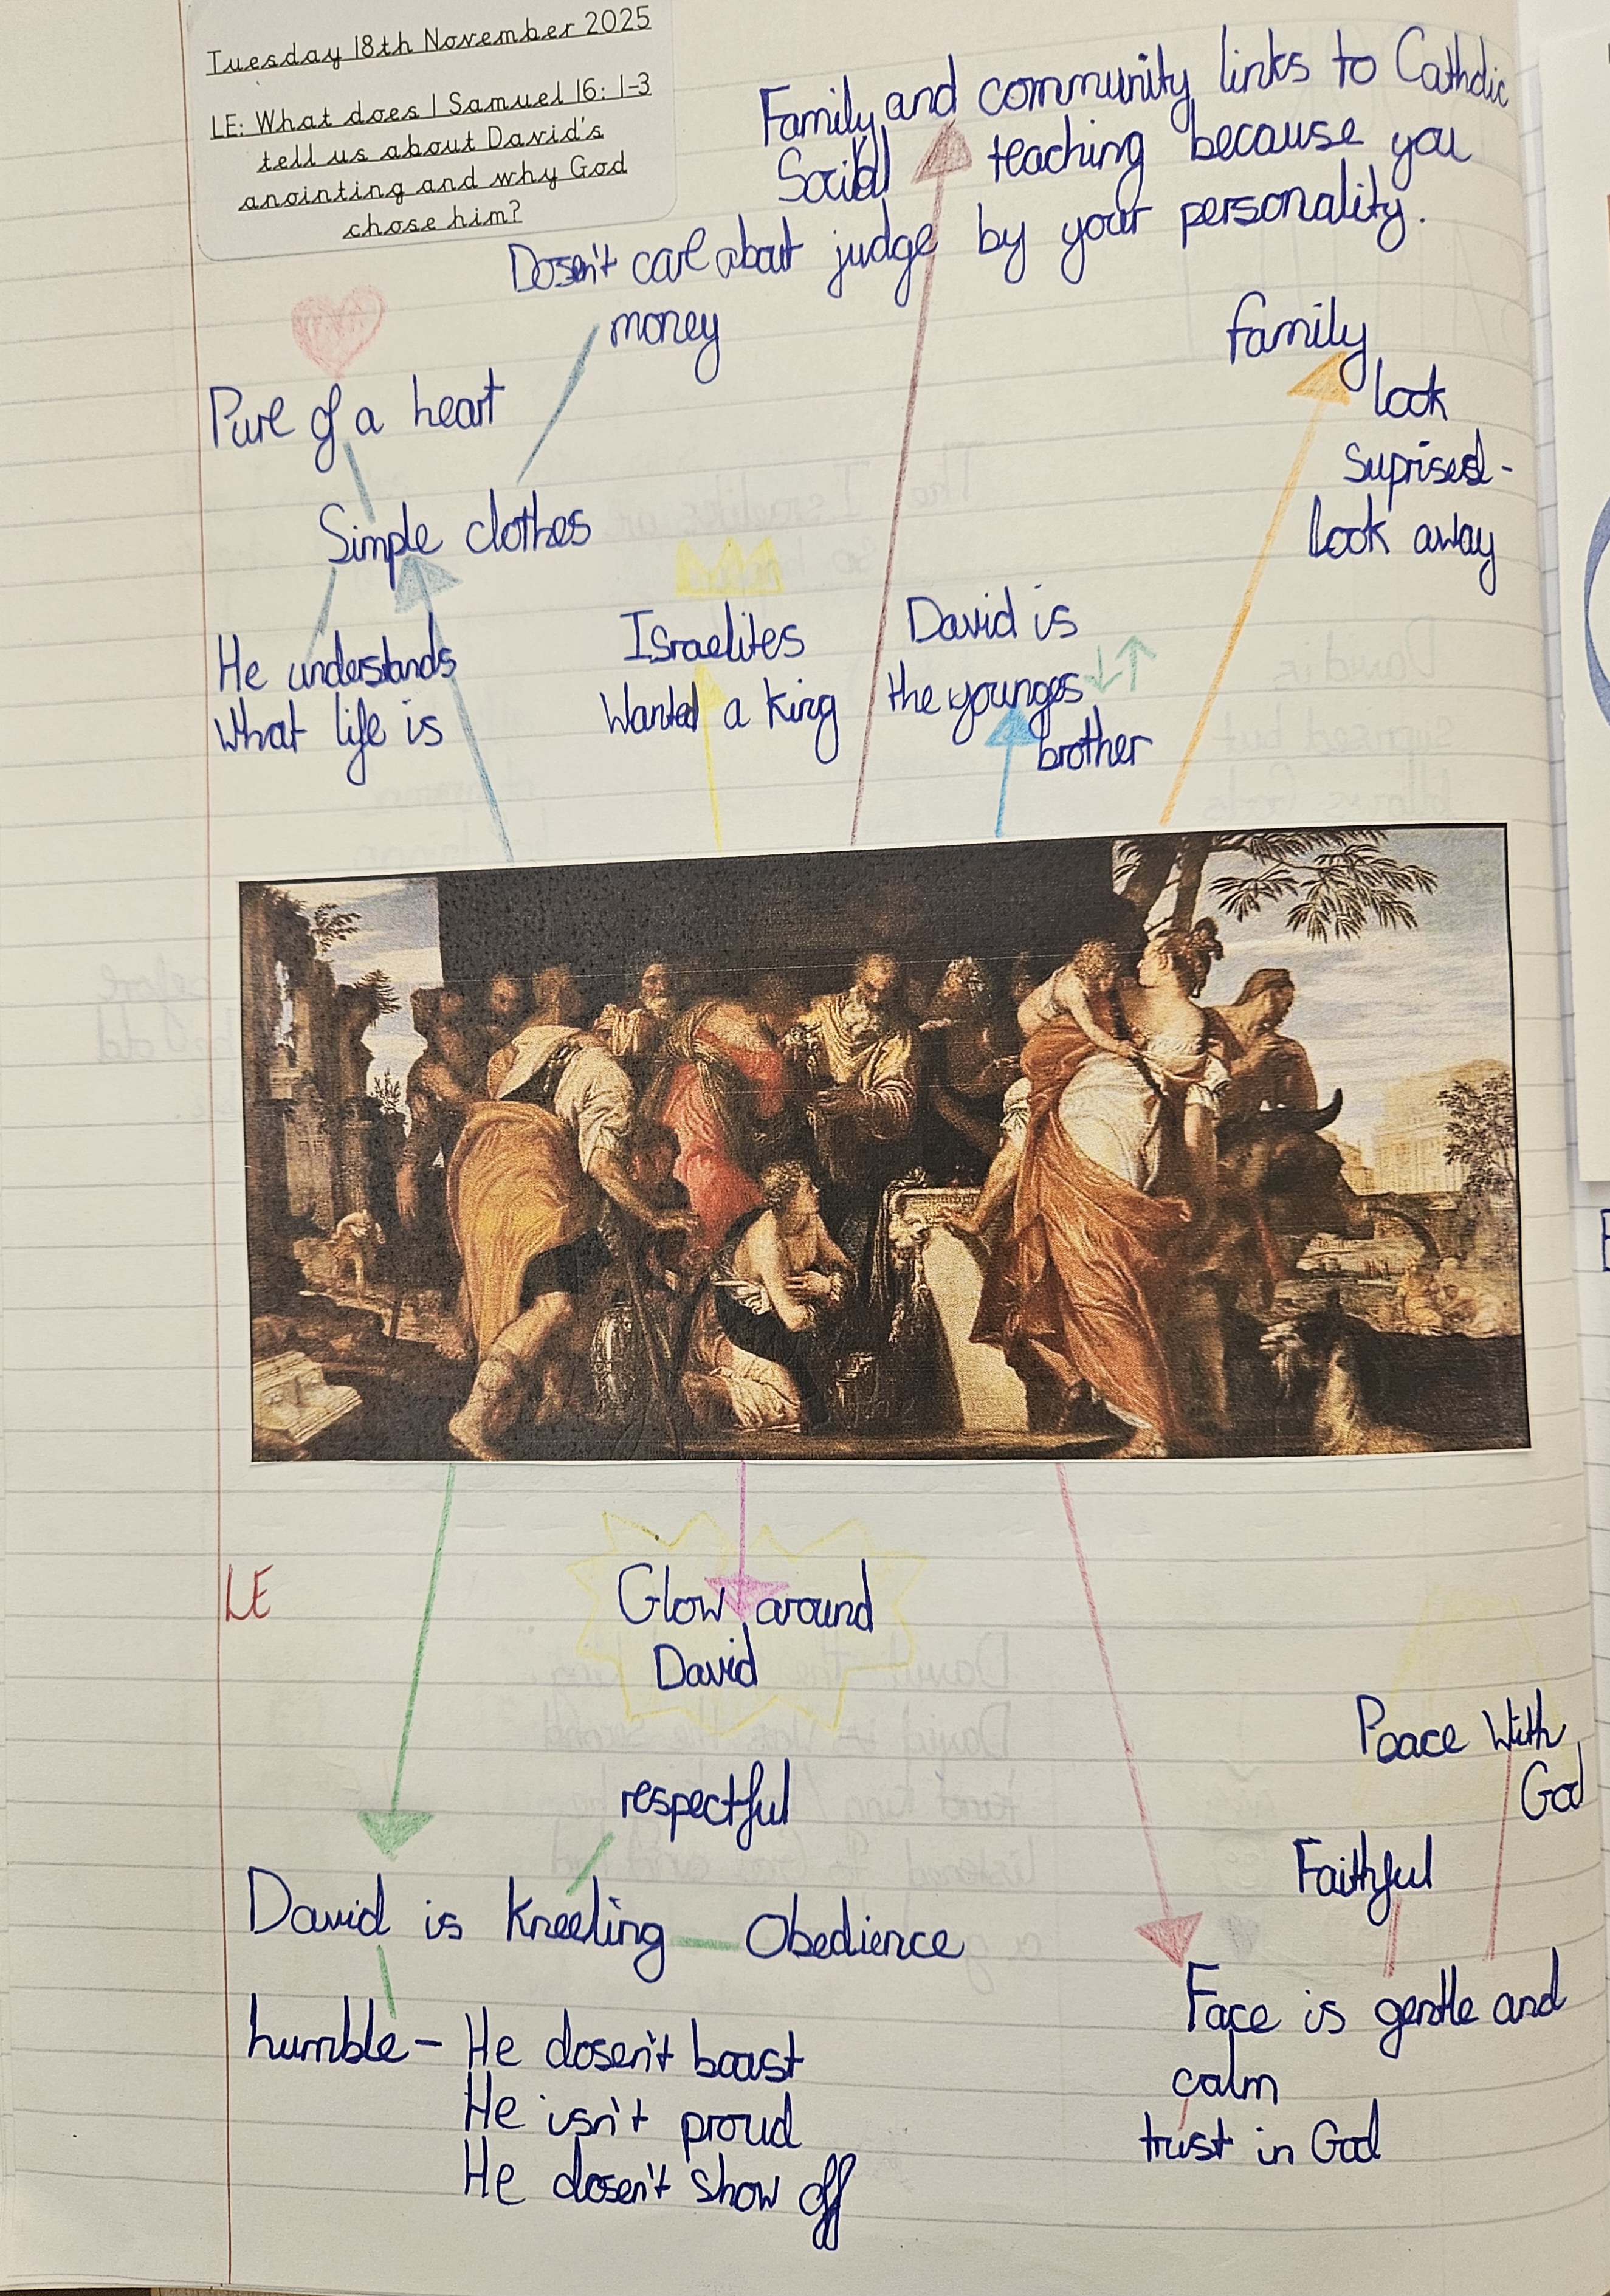 Tuesday 18th November 2025
LE: What does 1 Samuel 16: 1-3
tell us about David's
anointing and why God
chose him?
Family and community links to Catholic
Social teaching because you
judge by your personality.
Dosen't care about
money
Pure of a heart
Simple clothes
He understands
what life is
Israelites
Wanted a king
David is
the younges
brother
family
look
Suprised -
look away
LE
Glow around
David
respectful
David is kneeling - Obedience
humble - He dosen't boast
He isn't proud
He dosen't show off
Peace with
God
Faithful
Face is gentle and
calm
trust in God